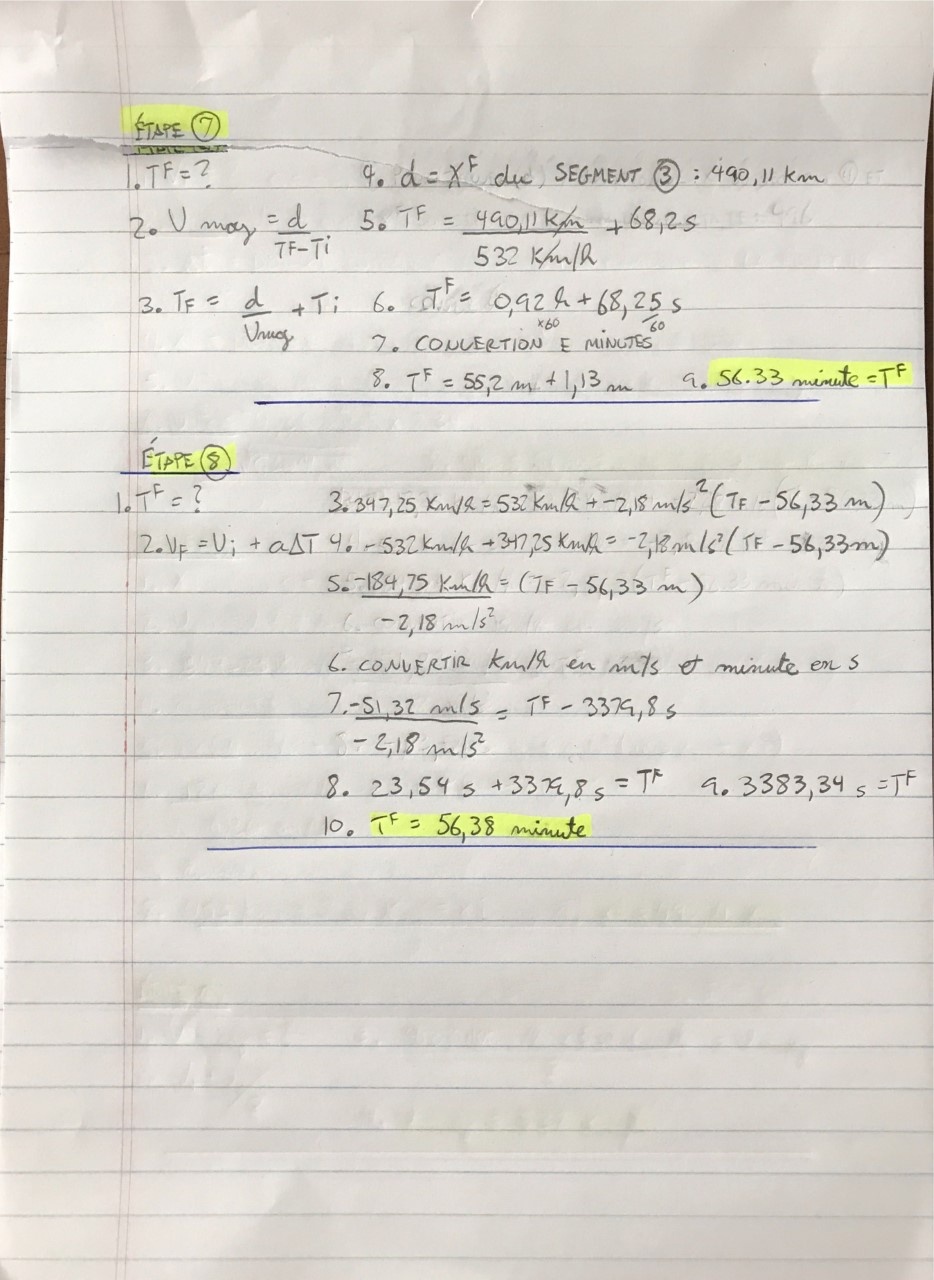 ÉTAPE ⑦
1. TF = ?
4. d = XF du SEGMENT ③ : 490,11 km
2. V moy = d / TF - Ti
5. TF = 490,11 K/m / 532 K/m/h + 68,2 s
3. TF = d / Vmoy + Ti
6. TF = 0,92 h + 68,25 s
x60 /60
7. CONVERTION E MINUTES
8. TF = 55,2 m + 1,13 m
9. 56.33 minute = TF
ÉTAPE ⑧
1. TF = ?
3. 347,25 Km/h = 532 Km/h + -2,18 m/s² (TF - 56,33 m)
2. VF = Vi + a∆T
4. -532 Km/h + 347,25 Km/h = -2,18 m/s² (TF - 56,33m)
5. -184,75 Km/h / -2,18 m/s² = (TF - 56,33 m)
6. CONVERTIR Km/h en m/s et minute en s
7. -51,32 m/s / -2,18 m/s² = TF - 3379,8 s
8. 23,54 s + 3379,8 s = TF
9. 3383,34 s = TF
10. TF = 56,38 minute